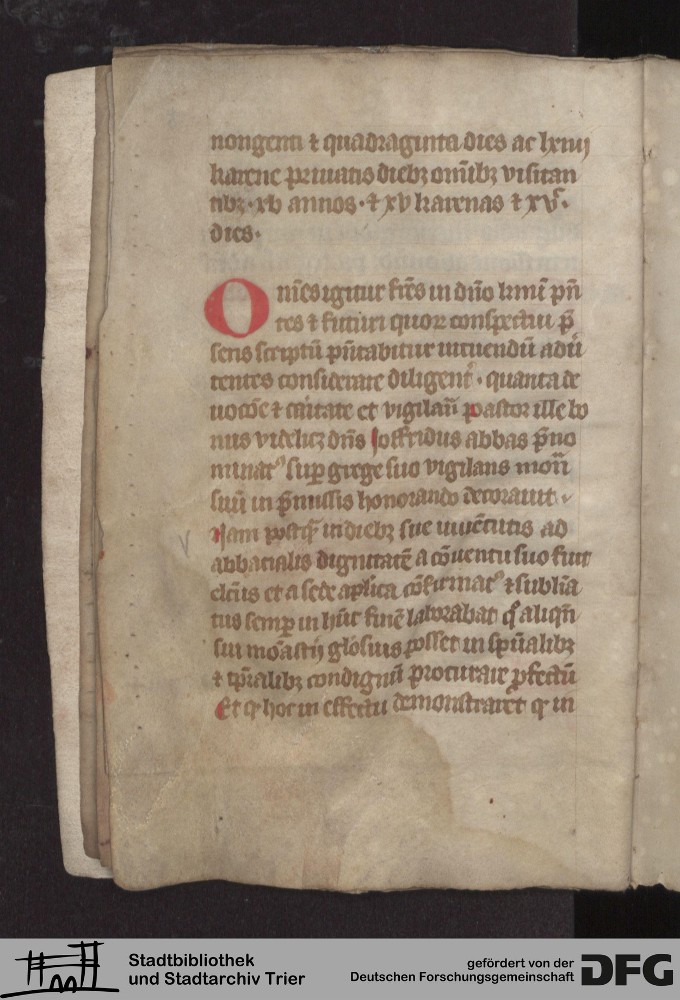 nongenti ⁊ quadraginta dies ac lxiiij
karene priuatis diebꝫ om̄ibꝫ visitan
tibꝫ · xv annos · ⁊ xv karenas ⁊ xv ·
dies ·
Om̄es igitur fr̄es in dn̄o kīmi pn̄
tes ⁊ futuri quoꝝ conspectui p̄
sens scriptū pn̄tabitur intuendū adū
tentes considerate diligenť · quanta de
uoc̄oe ⁊ caritate et vigilan̄ pastor ille bo
nus videlicꝫ dn̄s Joffridus abbas p̄no
minatꝰ suꝑ grege suo vigilans mon̄
suū in p̄missis honorando decorauit ·
Nam postꝙ̄ in diebꝫ sue iuuētutis ad
abbacialis dignitatē a cōuentu suo fuit
elc̄us et a sede aplica cōfirmatꝰ ⁊ sublīa
tus semꝑ in hūc finē laborabat ꝙ aliqn̄
sui mōastīj glōsuis posset in sp̄ualibꝫ
⁊ tp̄ralibꝫ condignū procurare ꝓfectū
Et ꝙ hoc in effectu demonstraret ꝙ in
Stadtbibliothek
und Stadtarchiv Trier
gefördert von der
Deutschen Forschungsgemeinschaft
DFG